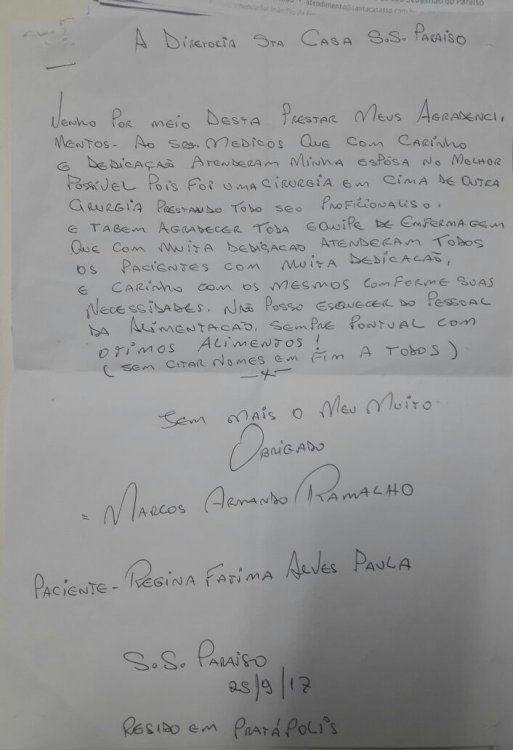 atendimento@santacasasso.com.br
A Diretoria Sta Casa S.S. Paraiso
Venho por meio desta prestar meus agradenci,
mentos- ao srs. medicos que com carinho
e dedicação atenderam minha espôsa no melhor
possível pois foi uma cirurgia em cima de outra
cirurgia prestando todo seu proficionaliso.
e tabem agradecer toda equipe de enfermagem
que com muita dediçacao atenderam todos
os pacientes com muita dedicação,
e carinho com os mesmos comforme suas
necessidades. Não posso esquecer do pessoal
da alimentacão, sempre pontual com
otimos alimentos!
(sem citar nomes em fim a todos)
Sem mais o meu muito
Obrigado
= Marcos Armando Ramalho
Paciente- Regina Fatima Alves Paula
S.S. Paraiso
25/9/17
Resido em Pratápolis